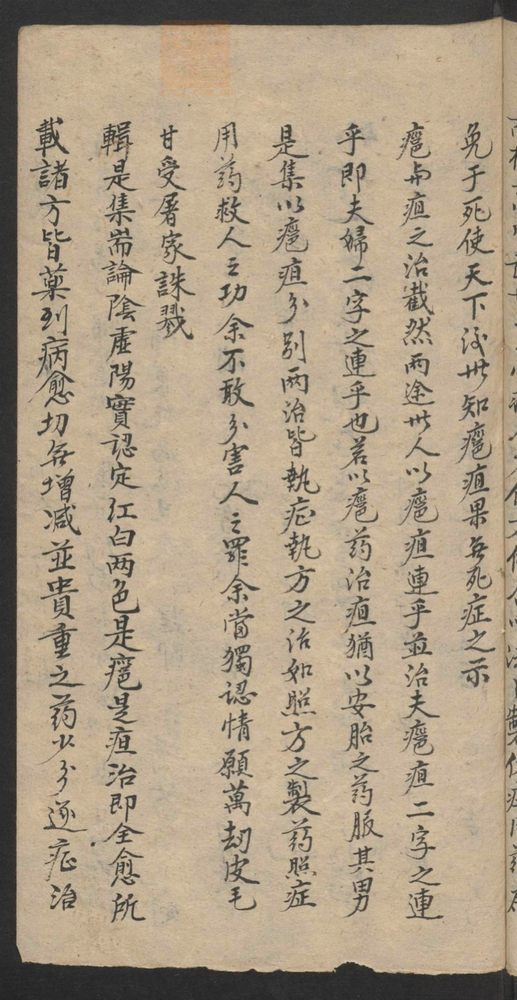 免于死使天下後世知癰疽果無死症之示
癰与疽之治截然两途世人以癰疽連乎並治夫癰疽二字之連
乎即夫婦二字之連乎也若以癰药治疽猶以安胎之药服其男
是集以癰疽分别两治皆執症執方之治如照方之製药照症
用药救人之功余不敢分害人之罪余當獨認情願萬刼皮毛
甘受屠家誅戮
輯是集耑論陰虛陽實認定红白两色是癰是疽治即全愈所
載諸方皆藥到病愈切無增减並貴重之药少分逐症治